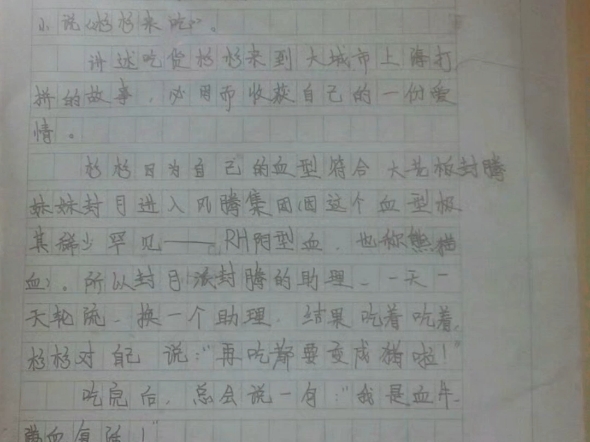 小说《杉杉来吃》。
讲述吃货杉杉来到大城市上海打
拼的故事，必因而收获自己的一份爱
情。
杉杉因为自己的血型符合大老板封腾
妹妹封月进入风腾集团(因这个血型极
其稀少罕见——RH阴型血，也称熊猫
血)。所以封月派封腾的助理、一天一
天轮流、换一个助理，结果吃着吃着，
杉杉对自己说："再吃都要变成猪啦！"
吃完后，总会说一句："我是血牛，
满血复活！"